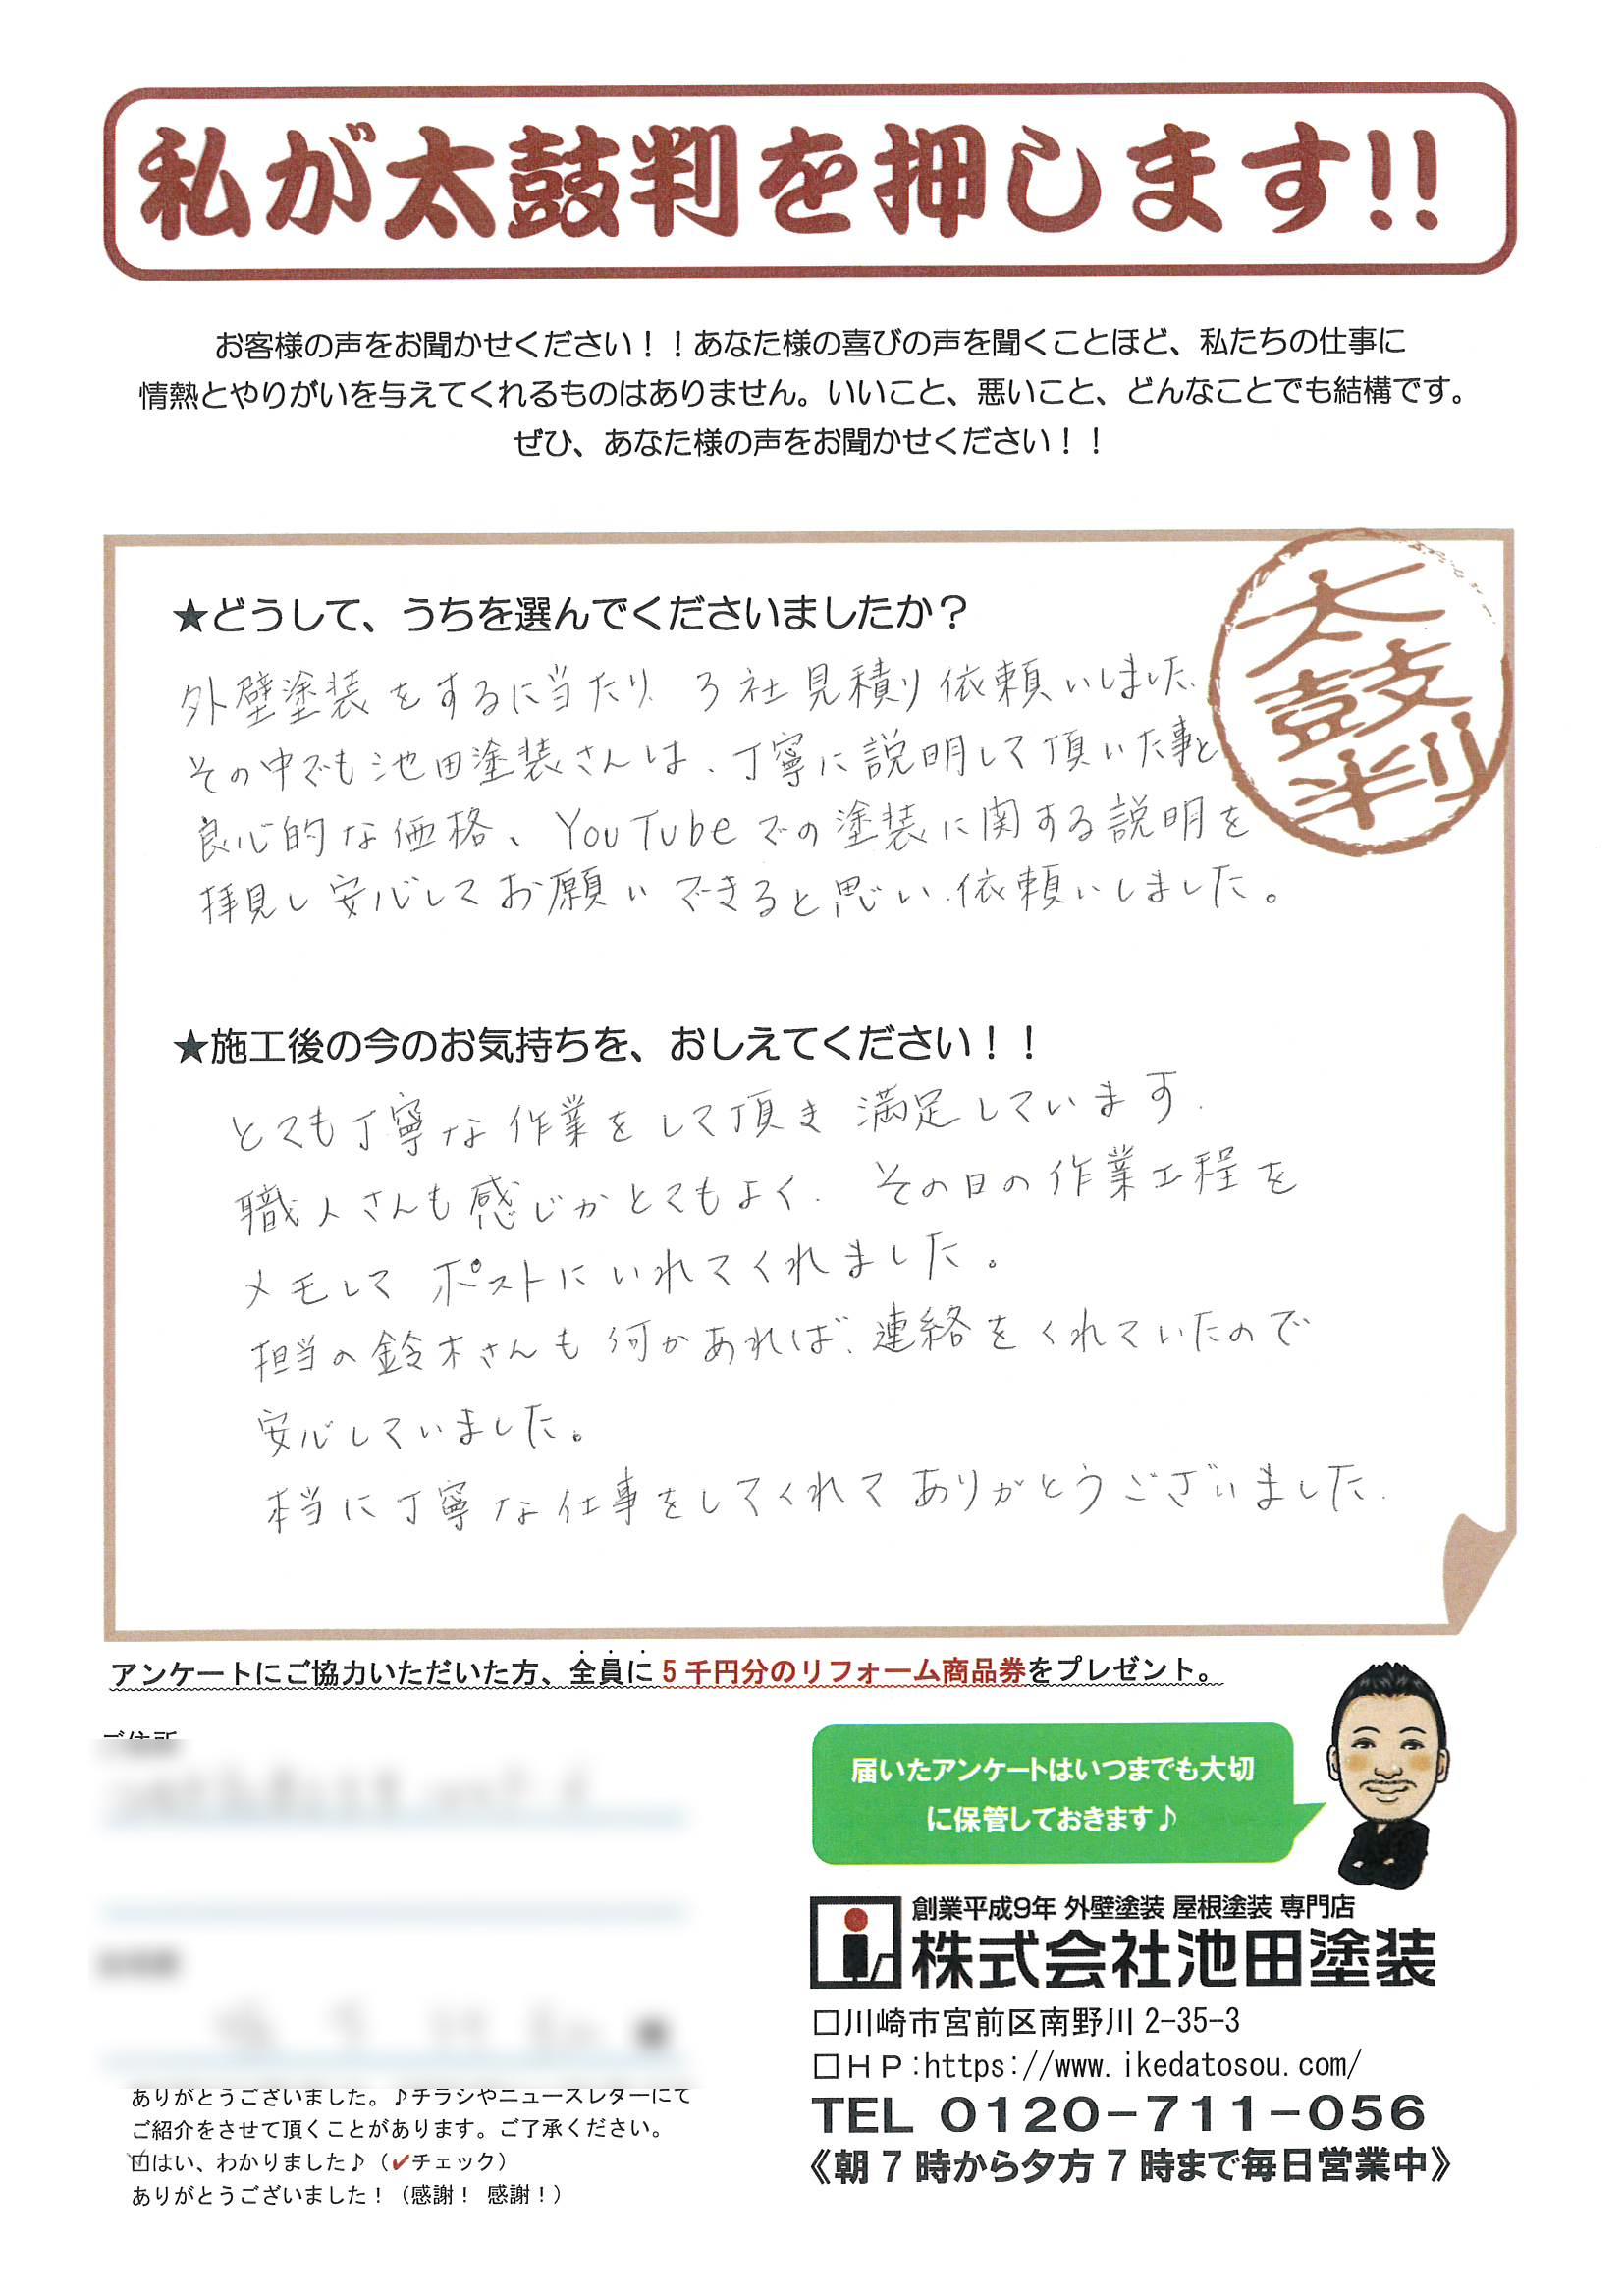 私が太鼓判を押します!!
お客様の声をお聞かせください！！あなた様の喜びの声を聞くことほど、私たちの仕事に
情熱とやりがいを与えてくれるものはありません。いいこと、悪いこと、どんなことでも結構です。
ぜひ、あなた様の声をお聞かせください！！
太鼓判
★どうして、うちを選んでくださいましたか？
外壁塗装をするに当たり、3社見積り依頼いしました。
その中でも池田塗装さんは、丁寧に説明して頂いた事と
良心的な価格、YouTubeでの塗装に関する説明を
拝見し安心してお願いできると思い、依頼いしました。
★施工後の今のお気持ちを、おしえてください！！
とても丁寧な作業をして頂き満足しています。
職人さんも感じがとてもよく、その日の作業工程を
メモしてポストにいれてくれました。
担当の鈴木さんも何かあれば、連絡をくれていたので
安心していました。
本当に丁寧な仕事をしてくれてありがとうございました。
アンケートにご協力いただいた方、全員に5千円分のリフォーム商品券をプレゼント。
ご住所
届いたアンケートはいつまでも大切
に保管しておきます♪
創業平成9年 外壁塗装 屋根塗装 専門店
株式会社池田塗装
□川崎市宮前区南野川2-35-3
□ＨＰ:https://www.ikedatosou.com/
TEL 0120-711-056
《朝7時から夕方7時まで毎日営業中》
ありがとうございました。♪チラシやニュースレターにて
ご紹介をさせて頂くことがあります。ご了承ください。
☑はい、わかりました♪（✔チェック）
ありがとうございました！（感謝！ 感謝！）